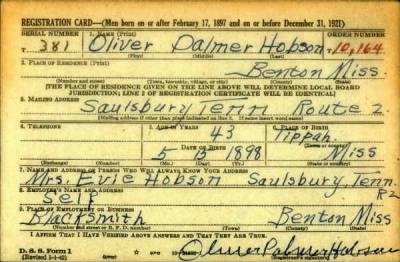 REGISTRATION CARD—(Men born on or after February 17, 1897 and on or before December 31, 1921)
SERIAL NUMBER 1. NAME (Print) ORDER NUMBER
T 381 Oliver Palmer Hobson T10,164
(First) (Middle) (Last)
2. PLACE OF RESIDENCE (Print)
Benton Miss
(Number and street) (Town, township, village, or city) (County) (State)
[THE PLACE OF RESIDENCE GIVEN ON THE LINE ABOVE WILL DETERMINE LOCAL BOARD
JURISDICTION; LINE 2 OF REGISTRATION CERTIFICATE WILL BE IDENTICAL]
3. MAILING ADDRESS
Saulsbury Tenn Route 2
(Mailing address if other than place indicated on line 2. If same insert word same)
4. TELEPHONE 5. AGE IN YEARS 6. PLACE OF BIRTH
43 Tippah
DATE OF BIRTH (Town or county)
5 1898 Miss
(Exchange) (Number) (Mo.) (Day) (Yr.) (State or country)
7. NAME AND ADDRESS OF PERSON WHO WILL ALWAYS KNOW YOUR ADDRESS
Mrs. Evie Hobson Saulsbury, Tenn.
R2
8. EMPLOYER'S NAME AND ADDRESS
Self
9. PLACE OF EMPLOYMENT OR BUSINESS
Blacksmith Benton Miss
(Number and street or R. F. D. number) (Town) (County) (State)
I AFFIRM THAT I HAVE VERIFIED ABOVE ANSWERS AND THAT THEY ARE TRUE.
D. S. S. Form 1
(Revised 1-1-42) Oliver Palmer Hobson